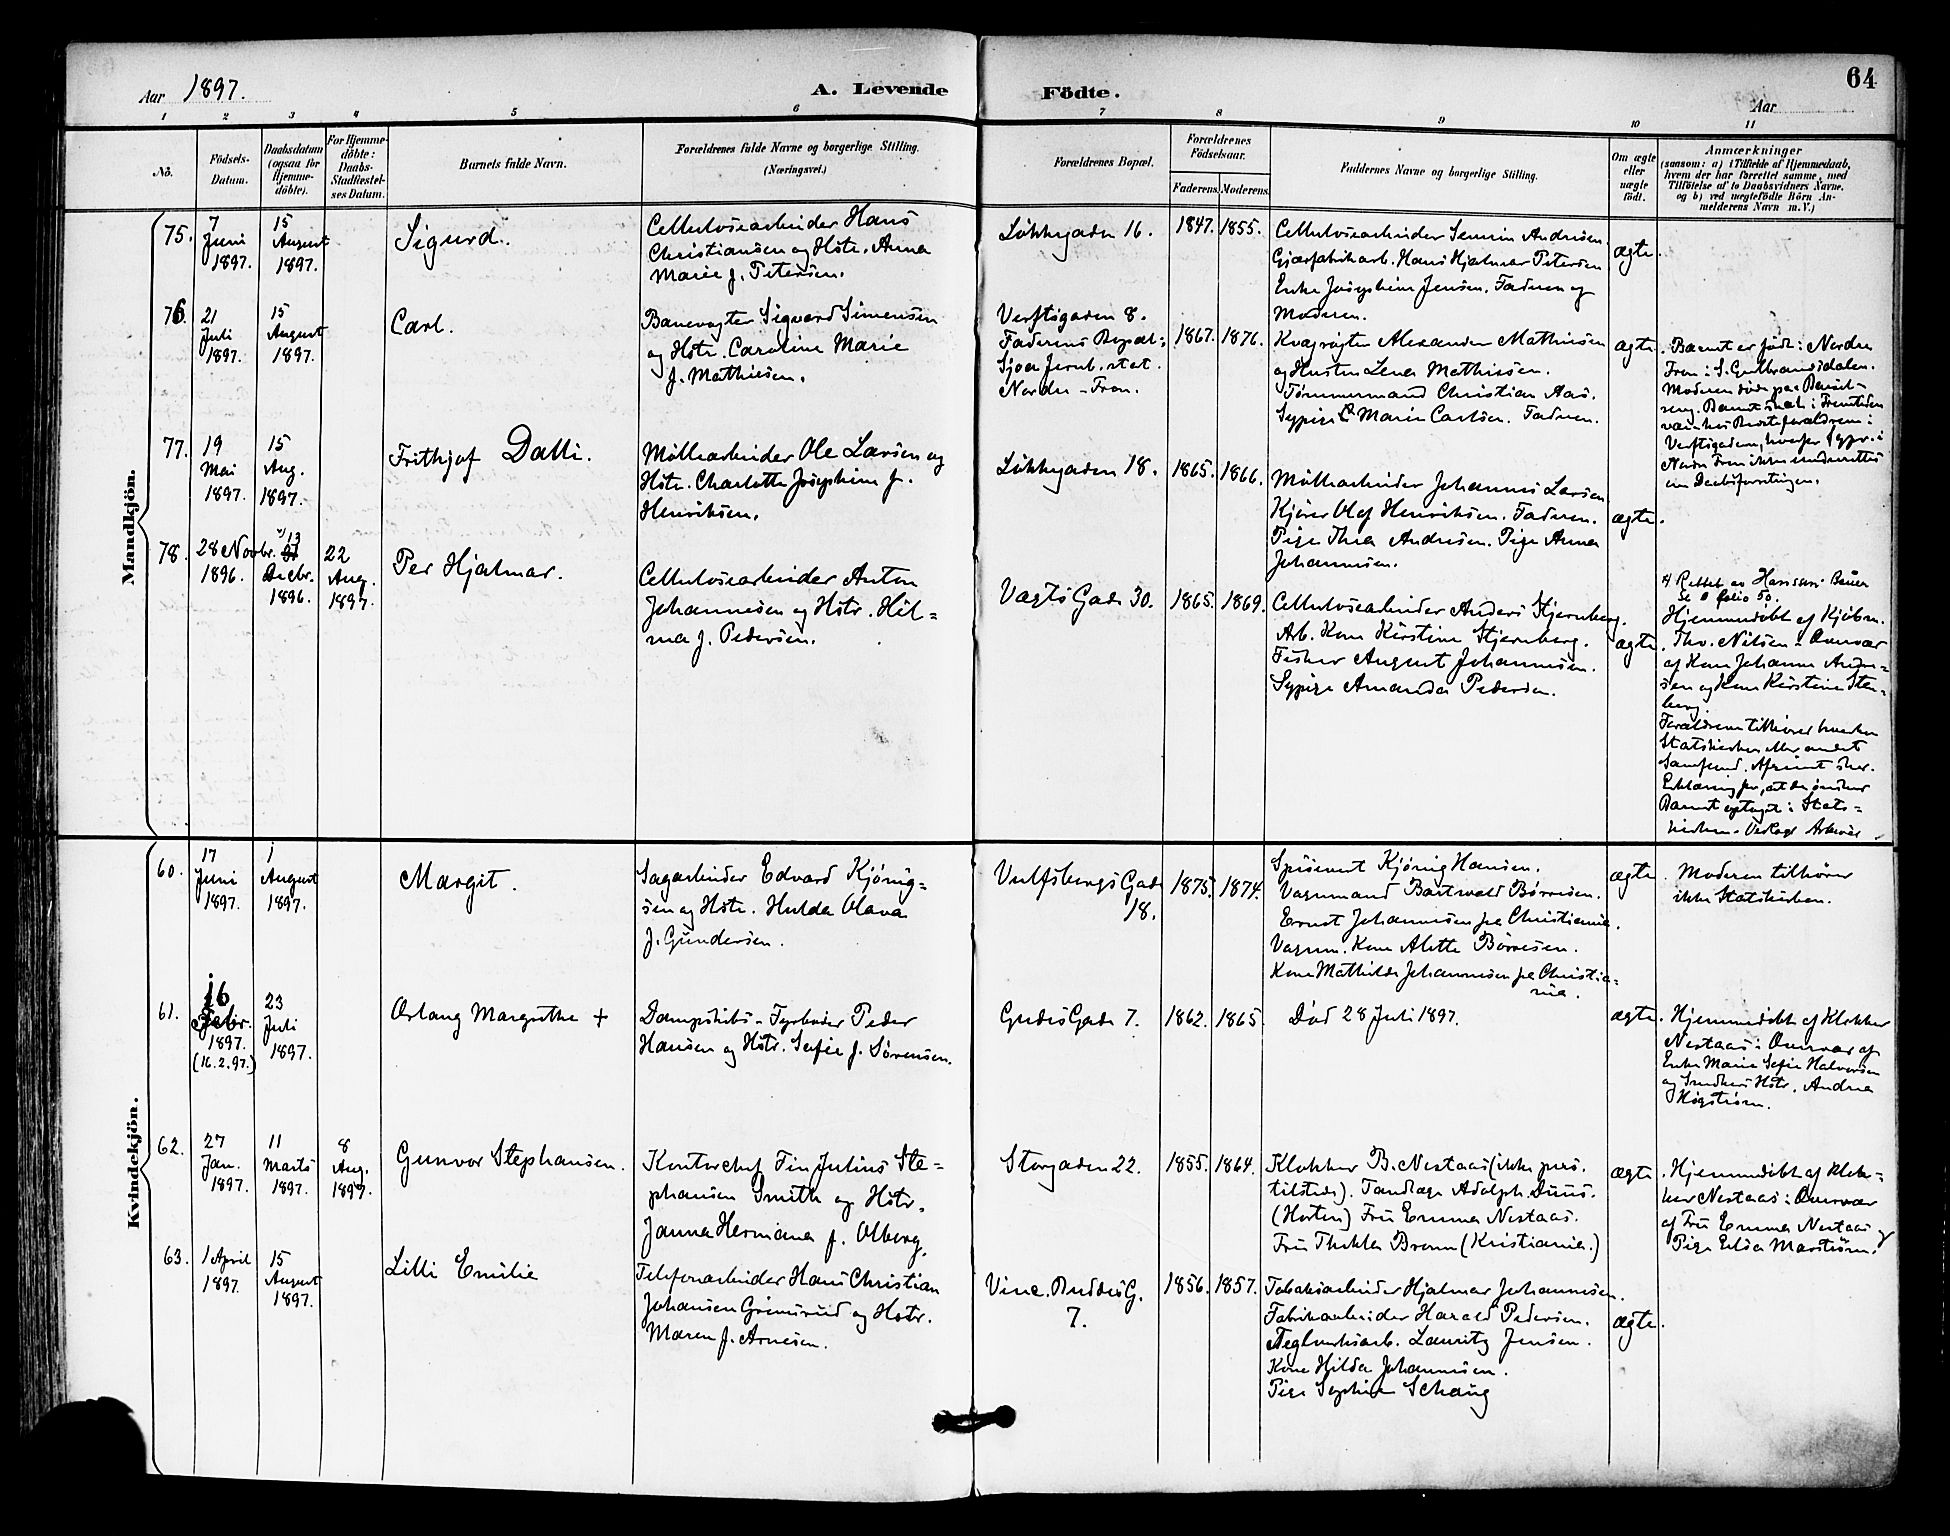 Aar 1897.
A. Levende
Födte.
Aar
64
1 2 3 4 5 6 7 8 9 10 11
No.
Födsels-Datum.
Daabsdatum (ogsaa for Hjemme-döbte).
For Hjemme-döbte: Daabs-Stadfæstel-ses Datum.
Barnets fulde Navn.
Forældrenes fulde Navne og borgerlige Stilling.
(Næringsvei.)
Forældrenes Bopæl.
Forældrenes Födselsaar.
Faderens. Moderens.
Faddernes Navne og borgerlige Stilling.
Om ægte eller uægte födt.
Anmærkninger
(saasom: a) i Tilfælde af Hjemmedaab,
hvem der har forrettet samme, med
Tilföielse af to Daabsvidners Navne,
og b) ved uægtefödte Börn An-
melderens Navn m.V.)
Mandkjön.
75.
7 Juni 1897.
15 August 1897.
Sigurd.
Cellulosearbeider Hans
Christiansen og Hstr. Anna
Marie f. Petersen.
Løkkegaden 16.
1847. 1855.
Cellulosearbeider Andersen.
Gjærfabrikarb. Hans Hjalmar Petersen
Enke Josephine Jensen. Faderen og
Moderen.
ægte.
76.
21 Juli 1897.
15 August 1897.
Carl.
Banevogter Sigvard Simensen
og Hstr. Caroline Marie
f. Mathiesen.
Verftsgaden 8.
Faderens Bopæl:
Sjoa Jernb. stat.
Nordre-Fron.
1867. 1876.
Alexander Mathiesen
og Hustru Lena Mathiesen.
Tømmermand Christian Aas.
Sypige Marie Carlsen. Faderen.
ægte.
Barnet er født i Nordre
Fron i S. Gudbrandsdalen.
Moderen døde paa Barsel-
seng. Barnet skal i Fremtiden
være hos Bedsteforældrene i
Verftsgaden, hvorfor Sgpr. i
Nordre Fron ikke underrettes
om Daabsforretningen.
77.
19 Mai 1897.
15 Aug. 1897.
Frithjof Dalli.
Møllearbeider Ole Larsen og
Hstr. Charlotte Josephine f.
Henriksen.
Løkkegaden 18.
1865. 1866.
Møllearbeider Johannes Larsen
Kjører Olaf Henriksen. Faderen.
Pige Thea Andersen. Pige Anna
Johannesen.
ægte.
78.
28 Novbr. 1896.
13 Decbr. 1896.
22 Aug. 1897.
Per Hjalmar.
Cellulosearbeider Anton
Johannesen og Hstr. Hil-
ma f. Pedersen.
Vogts Gade 30.
1865. 1869.
Cellulosearbeider Anders Stjernberg.
Arb. Kone Kirstine Stjernberg.
Fisker August Johannesen.
Sypige Amanda Pedersen.
ægte.
Rettet av
Se folio 50.
Hjemmedøbt af Kjøbm.
Thv. Nilsen i Overvær
af Kone Johanne Ander-
sen og Kone Kirstine Sten-
berg.
Forældrene tilhører hverken
Statskirken eller andet
Samfund. Afgivet skr.
Erklæring for, at de ønsker
Barnet optaget i Stats-
kirken.
Kvindekjön.
60.
17 Juni 1897.
1 August 1897.
Margit.
Sagarbeider Edvard Kjønig-
sen og Hstr. Hulda Olava
f. Gundersen.
Vulfsbergs Gade
18.
1875. 1874.
Kjønig Hansen.
Vognmand Bartvald Børresen.
Ernst Johannesen fra Christiania.
Vognm. Kone Alette Børresen.
Kone Mathilde Johannesen fra Christia-
nia.
ægte.
Moderen tilhører
ikke Statskirken.
61.
16 Febr. 1897.
(16.2.97.)
23 Juli 1897.
Aslaug Margrethe +
Dampskibs-Fyrbøder Peder
Hansen og Hstr. Sofie f. Sørensen.
Gudes Gade 7.
1862. 1865.
Død 28 Juli 1897.
ægte.
Hjemmedøbt af Klokker
Nestaas i Overvær af
Enke Marie Sofie Halvorsen
og Hstr. Andrea
Högström.
62.
27 Jan. 1897.
11 Marts 1897.
8 Aug. 1897.
Gunvor Stephansen.
Kontorchef Fin Julius Ste-
phansen Smith og Hstr.
Janna Hermana f. Olberg.
Storgaden 22.
1855. 1864.
Klokker B. Nestaas (ikke pers.
tilstede). Tandlæge Adolph Duus.
(Horten) Fru Emma Nestaas.
Fru Thekla Brown (Kristiania.)
ægte.
Hjemmedøbt af Klok-
ker Nestaas i Overvær
af Fru Emma Nestaas og
Pige Elida Marström.
63.
1 April 1897.
15 August 1897.
Lilli Emilie
Telefonarbeider Hans Christian
Johansen Grimsrud og Hstr.
Maren f. Arnesen.
Vinc. Buddes G.
7.
1856. 1857.
Tobaksarbeider Hjalmar Johannesen.
Fabrikarbeider Harald Pedersen.
Teglverksarb. Lauritz Jensen.
Kone Hilda Johannesen.
Pige Sophie Schaug
ægte.